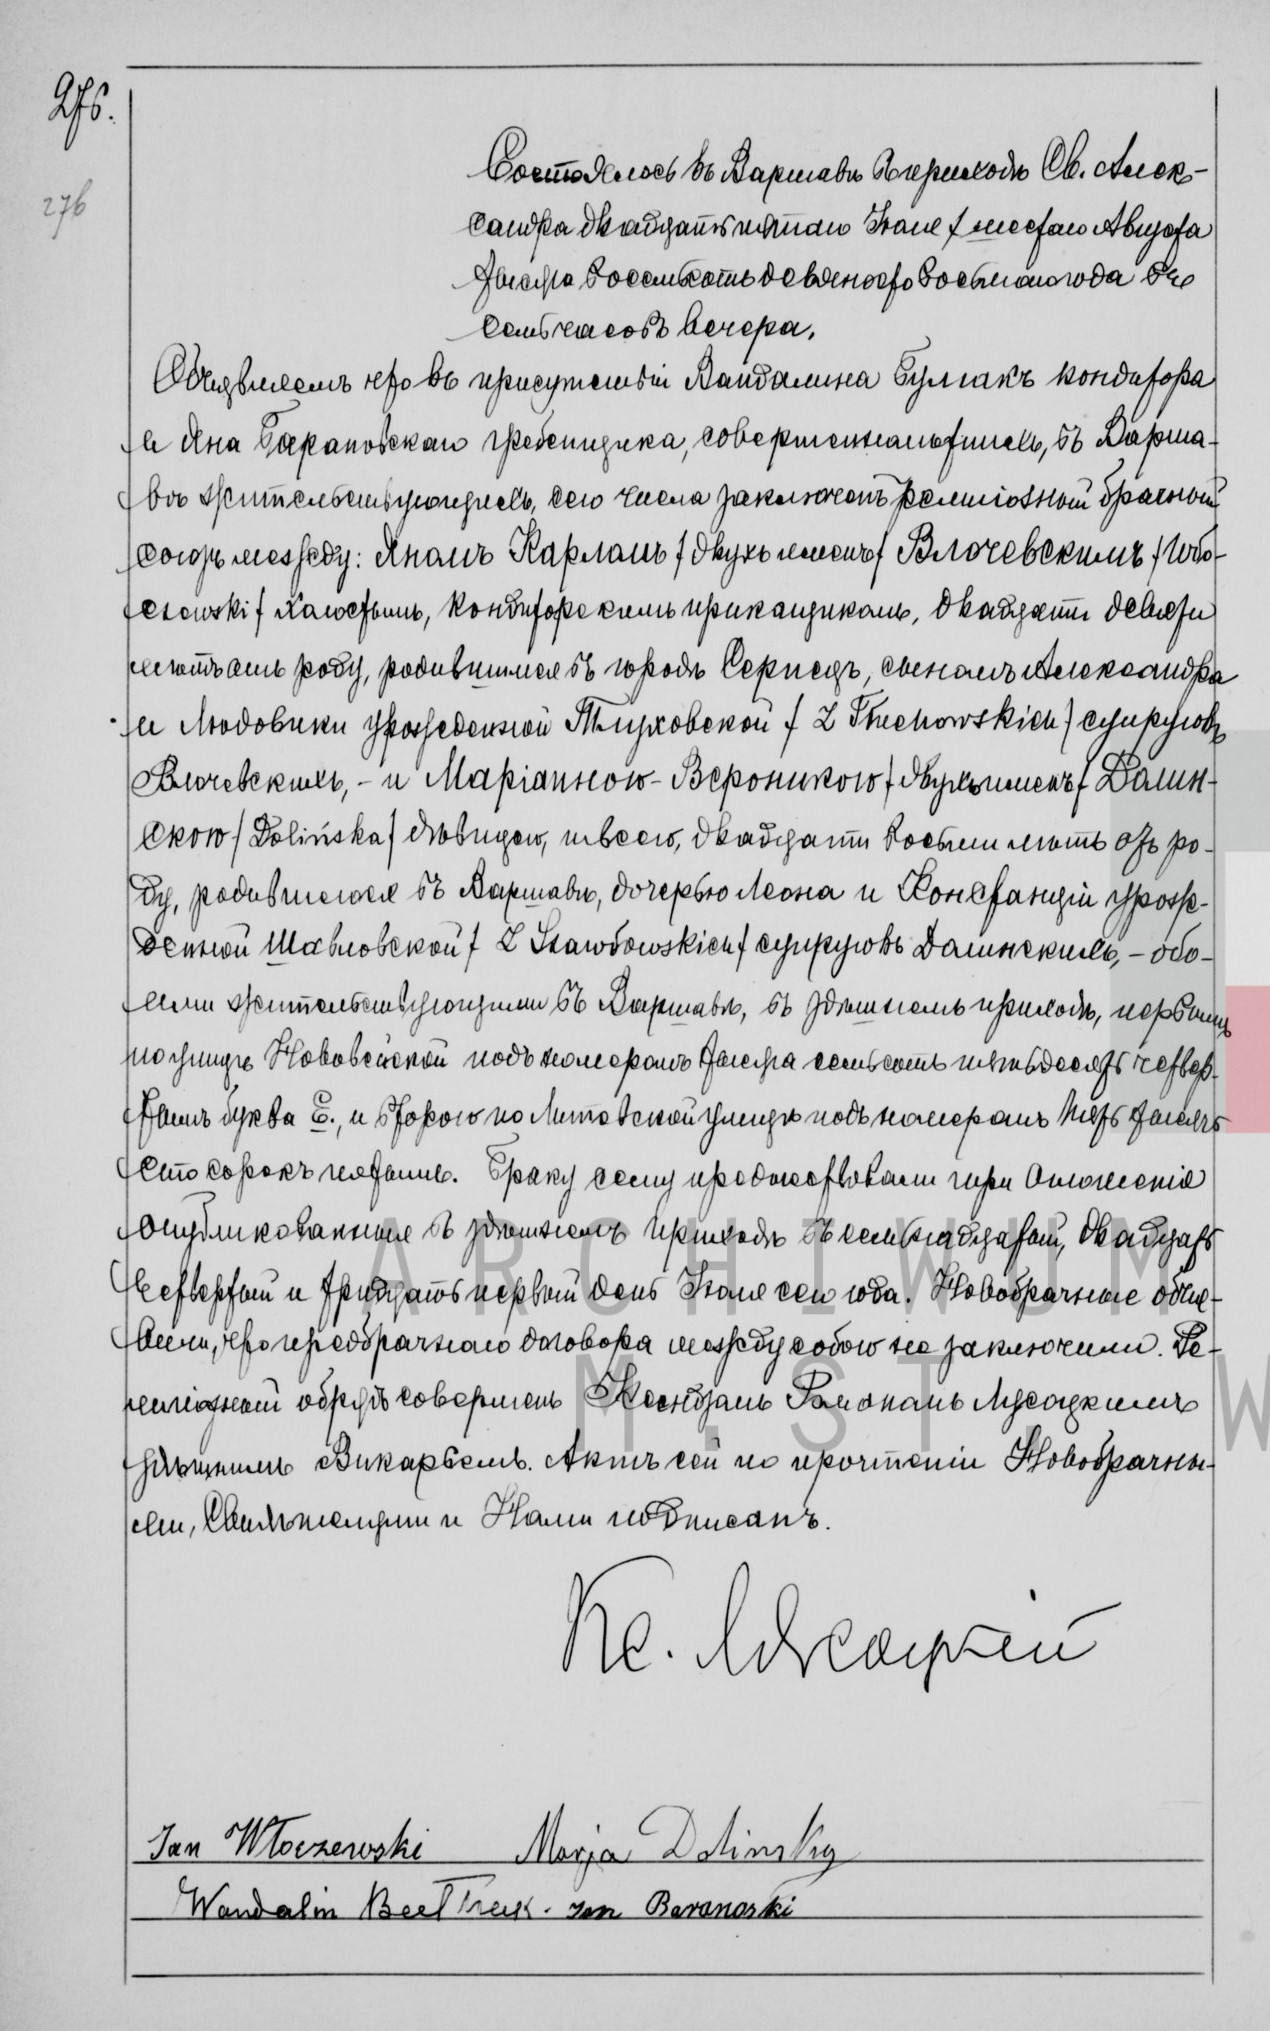 276.
276
Состоялось въ Варшавѣ въ приходѣ Св. Алек-
сандра двадцать пятаго Іюля / шестаго Августа
тысяча восемьсотъ девяносто восьмаго года въ
семь часовъ вечера.
Объявляемъ что въ присутствіи Вандалина Бульакъ кондитора
и Яна Барановскаго гребенщика, совершеннолѣтнихъ, въ Варша-
вѣ жительствующихъ, сего числа заключенъ религіозный брачный
союзъ между: Яномъ Карломъ / двухъ именъ / Влочевскимъ / Wło-
czewski / холостымъ, кондиторскимъ приказчикомъ, двадцати девяти
лѣтъ отъ роду, родившимся въ городѣ Серпецъ, сыномъ Александра
и Людовики урожденной Тлуховской / z Tłuchowskich / супруговъ
Влочевскихъ, - и Маріанною-Вероникою / двухъ именъ / Долин-
скою / Dolińska / дѣвицею, швеею, двадцати восьми лѣтъ отъ ро-
ду, родившеюся въ Варшавѣ, дочерью Леона и Констанціи урож-
денной Шавловской / z Szawłowskich / супруговъ Долинскихъ, - обо-
ими жительствующими въ Варшавѣ, въ здѣшнемъ приходѣ, первымъ
по улицѣ Нововейской подъ номеромъ тысяча семьсотъ пятьдесятъ четвер-
тымъ буква Е., и второю по Литовской улицѣ подъ номеромъ пять тысячъ
сто сорокъ пятымъ. Браку сему предшествовали три оглашенія
опубликованныя въ здѣшнемъ приходѣ въ семнадцатый, двадцать
четвертый и тридцать первый день Іюля сего года. Новобрачные объя-
вили, что предбрачнаго договора между собою не заключили. Ре-
лигіозный обрядъ совершенъ Ксендзомъ Романомъ
здѣшнимъ Викаріемъ. Актъ сей по прочтеніи Новобрачны-
ми, Свидѣтелями и Нами подписанъ.
Кс.
Jan Włoczewski Marja Dolinsky
Wandalin Jan Baranoski
ARCHIWUM
M. ST. W